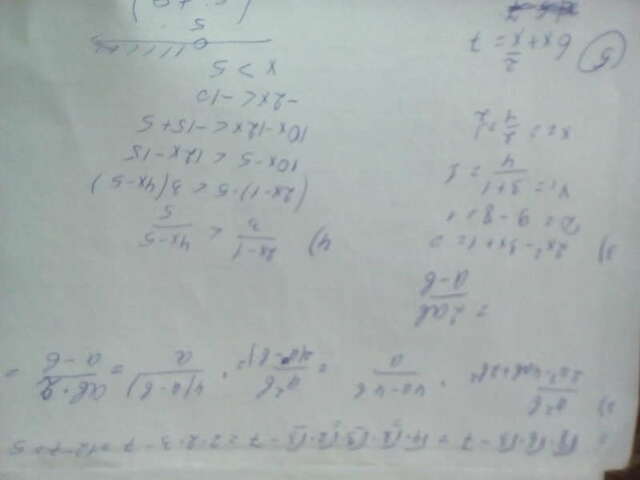 - 7 = 2·2·3 - 7 = 12 - 7 = 5
2) a²b / 2a²-4ab+2b² · 4a-4b / a = a²b / 2(a-b)² · 4(a-b) / a = ab·2 / a-b =
= 2ab / a-b
3) 2x²-3x+1=0
D = 9-8=1
x₁ = 3+1 / 4 = 1
x₂ = 2/4 = 1/2
4) 2x-1 / 3 < 4x-5 / 5
(2x-1)·5 < 3(4x-5)
10x-5 < 12x-15
10x-12x < -15+5
-2x < -10
x > 5
5
5 6x + x/2 = 7